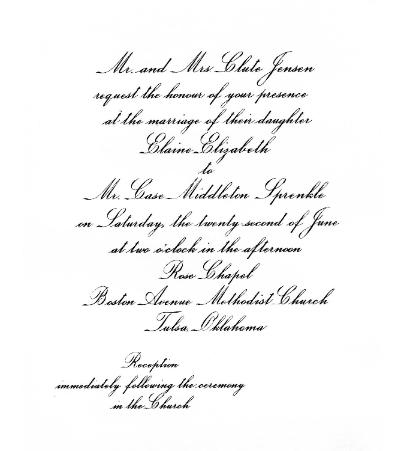 Mr. and Mrs Clute Jensen
request the honour of your presence
at the marriage of their daughter
Elaine Elizabeth
to
Mr. Case Middleton Sprenkle
on Saturday, the twenty second of June
at two o'clock in the afternoon
Rose Chapel
Boston Avenue Methodist Church
Tulsa, Oklahoma
Reception
immediately following the ceremony
in the Church